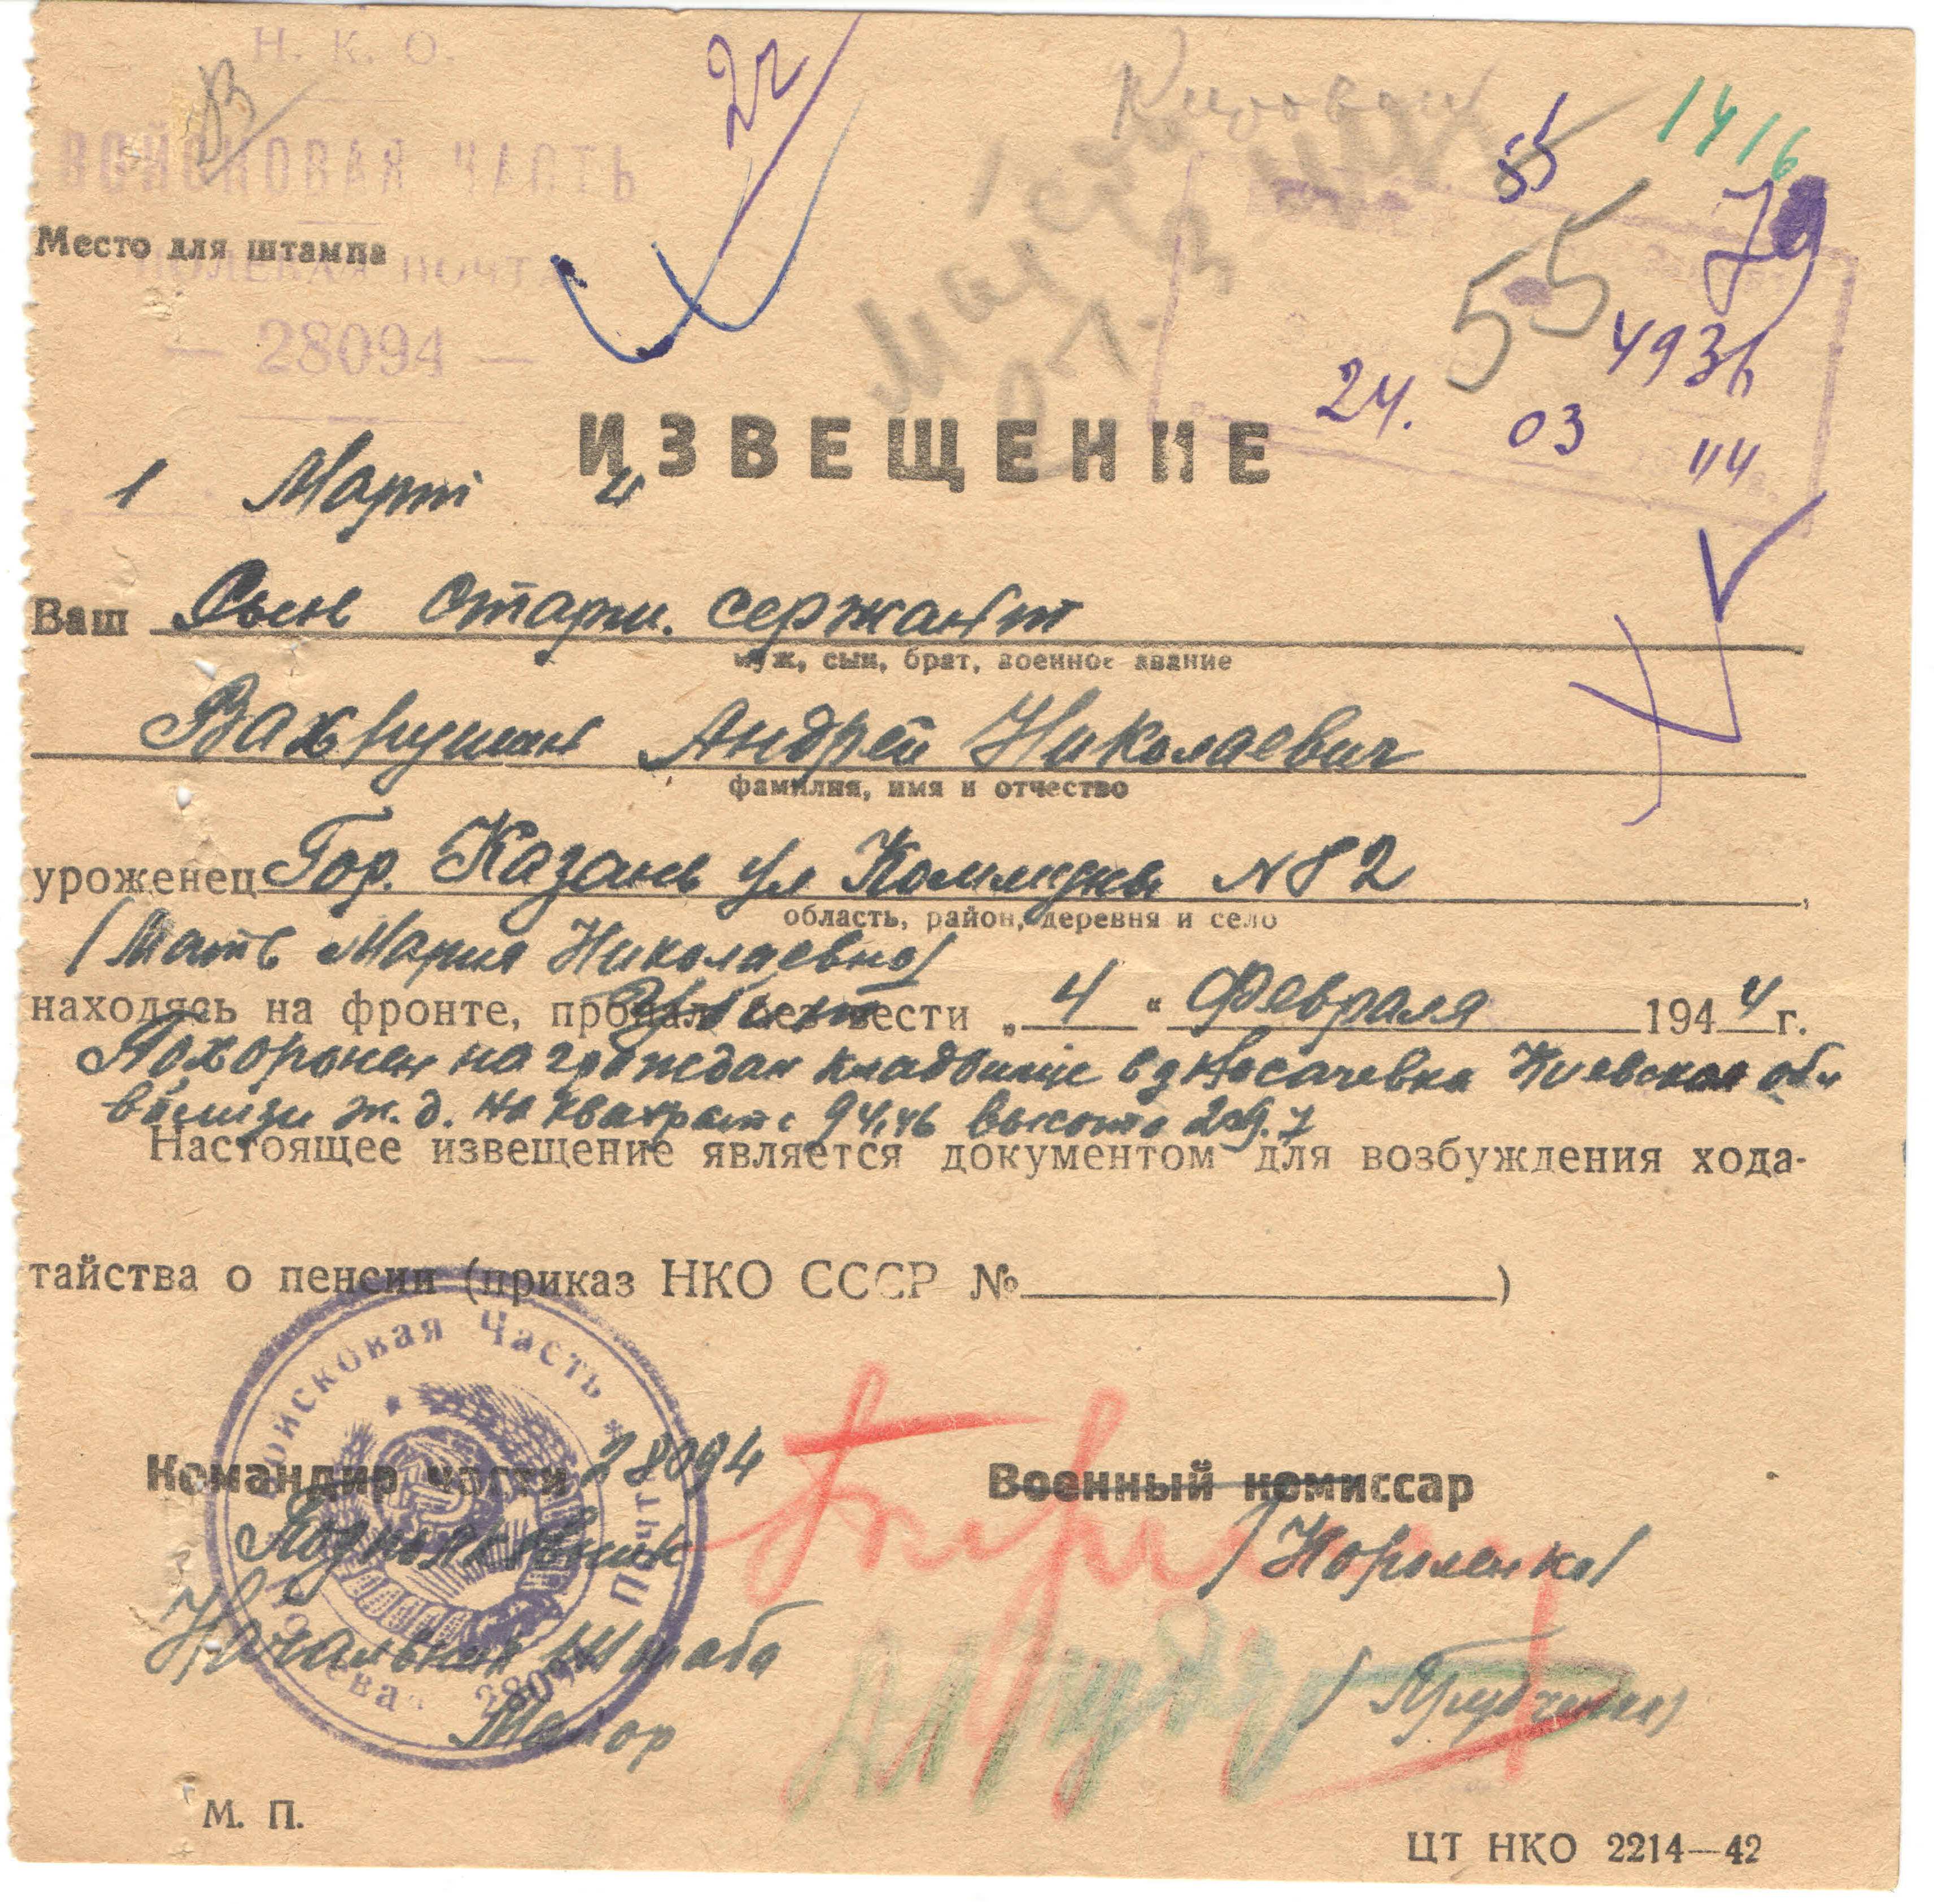 Н. К. О.
ВОЙСКОВАЯ ЧАСТЬ
Место для штампа
ПОЛЕВАЯ ПОЧТА
— 28094 —
22
55
1416
79
55
4936
24. 03 44
ИЗВЕЩЕНИЕ
1 Март 4
Ваш Сын старш. сержант
муж, сын, брат, военное звание
Вахрушин Андрей Николаевич
фамилия, имя и отчество
уроженец Гор. Казань ул Коммуны №82
область, район, деревня и село
(Мать Мария Николаевна)
находясь на фронте, пропал без вести „4“ Февраля 1944 г.
Похоронен на граждан кладбище в д Носачевка Киевская обл
вблизи ж.д. на квадрате 94,46 высота 209.7
Настоящее извещение является документом для возбуждения хода-
тайства о пенсии (приказ НКО СССР № )
Войсковая Часть * Почта Полевая 28094
Командир части 28094 Военный комиссар
Подполковник /Короленко/
Начальник Штаба
Майор
М. П.
ЦТ НКО 2214—42